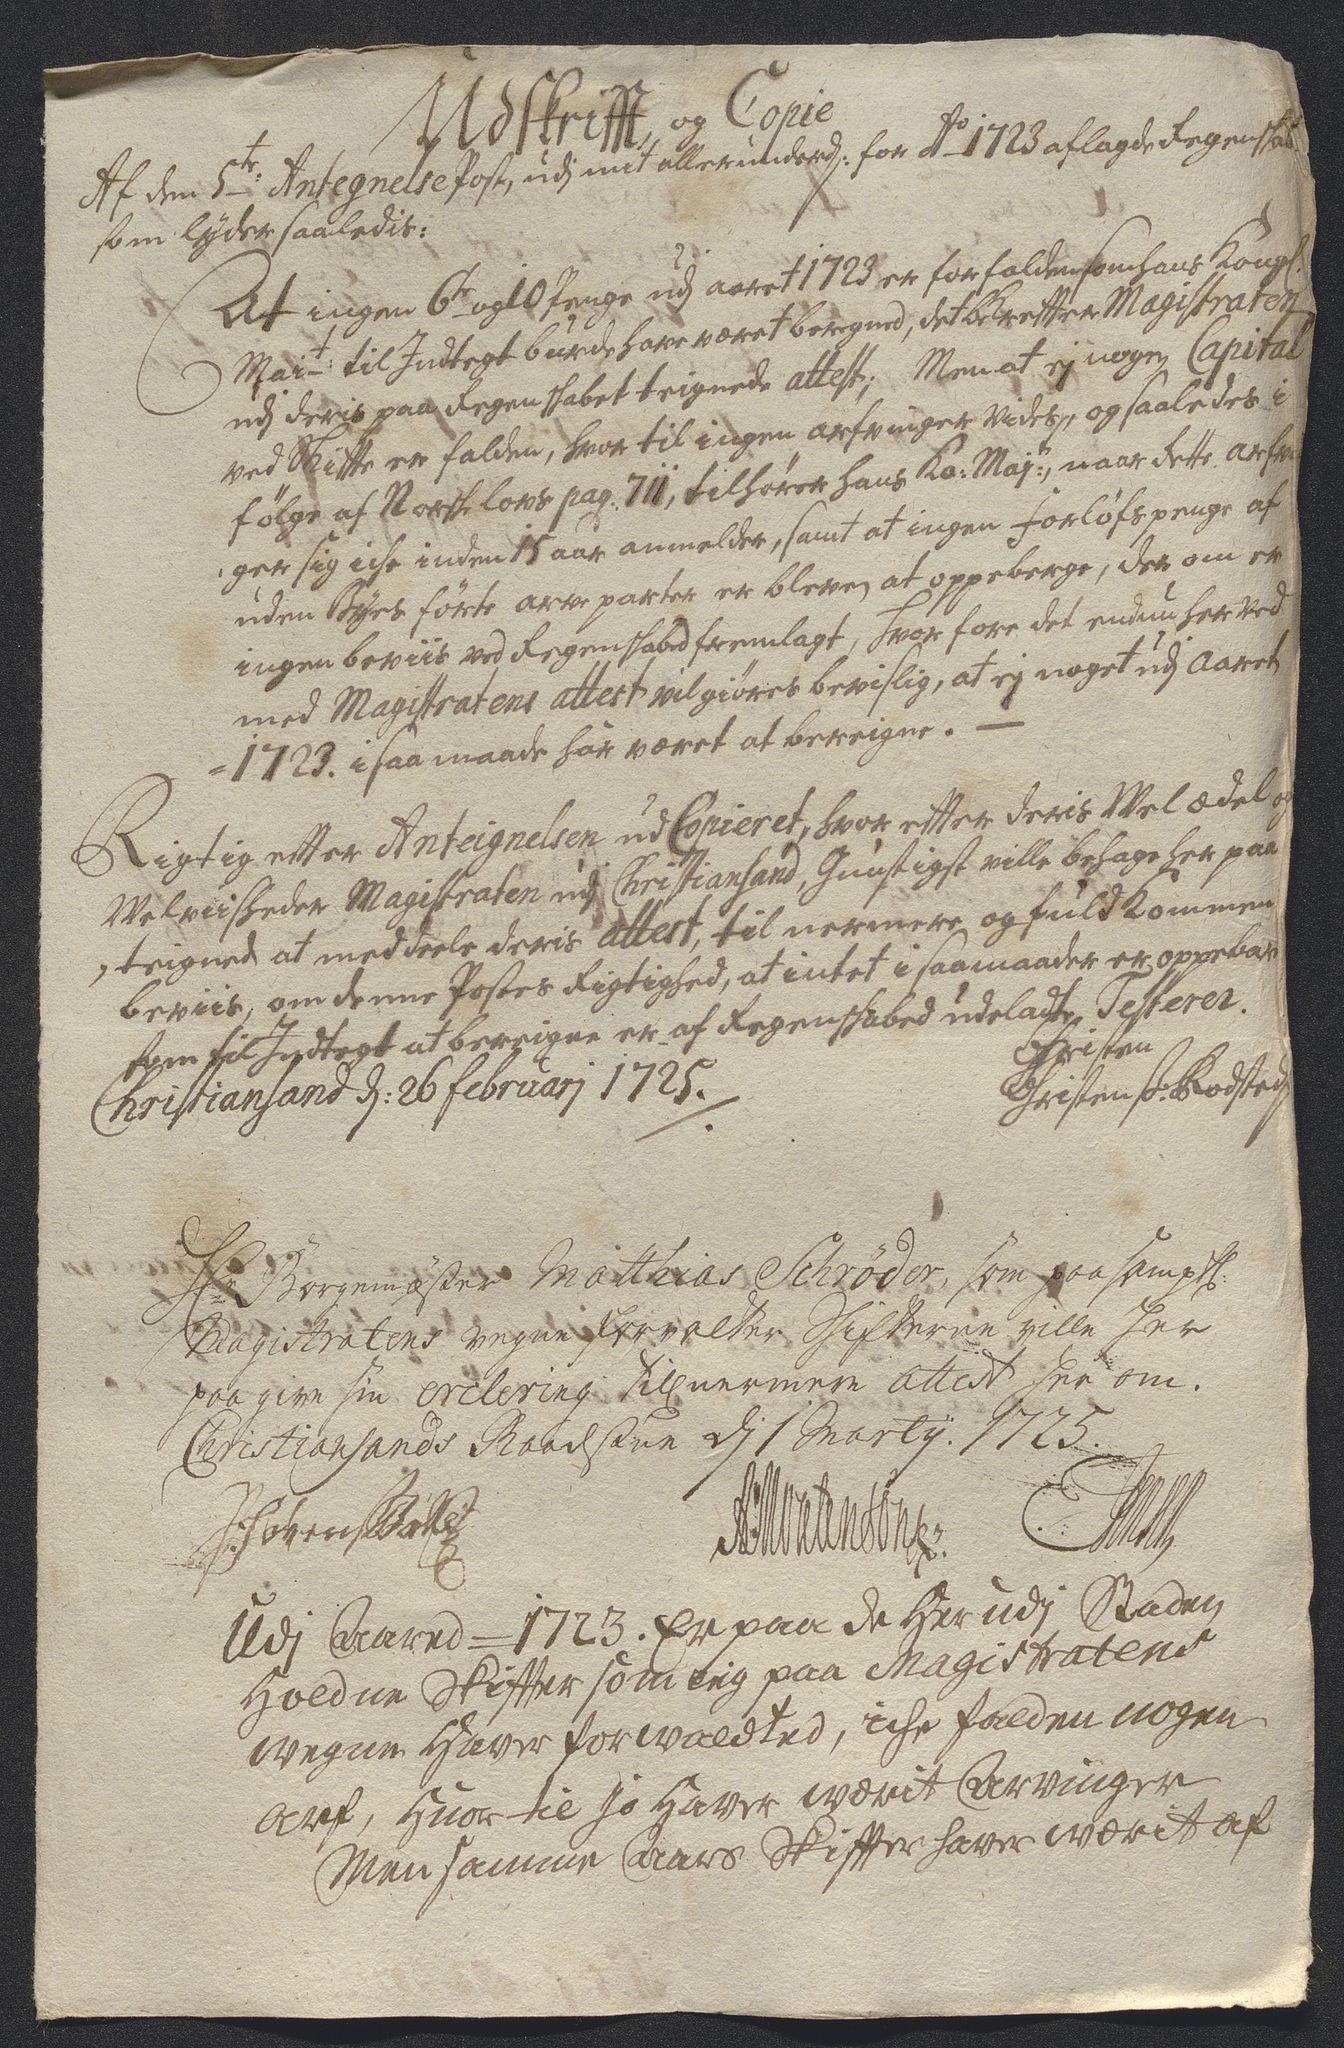 Udskrifft, og Copie
Af den 5te: Antegnelse Post, udj mit allerunderd: for Ao 1723 aflagde Regenskab
som lyder saaledis:
At ingen 6te og 10 Penge udj aaret 1723 er forfalden som hans Kongl.
Mait: til Indtegt burde have været beregned, det bekreffter Magistraten
udj deris paa Regenskabet teignede attest; Men at ej nogen Capital
ved Skifte er falden, hvor til ingen arfvinger vides, og saaledes i
følge af Norske lovs pag. 711, tilhører hans Ko: Maj:, naar dette arfvin
ger sig iche inden 15 aar anmelder, samt at ingen forløfs penge af
uden Byes førte arve parter er bleven at oppeberge, der om er
ingen beviis ved Regenskabed fremlagt, hvor fore det endnu her ved
med Magistratens attest vil giøres bevislig, at ej noget udj Aaret
=1723. i saa maade har været at bereigne. —
Rigtig etter Anteignelsen ud Copieret, hvor etter deris Wel ædel og
Welviisheder Magistraten udj Christiansand, Gunstigst ville behage her paa
teigned at meddeele deris attest, til nermere og fuldkommen
beviis, om denne Postes Rigtighed, at intet i saamaader er oppebar
som til Indtegt at bereigne er af Regenskabed udeladt. Testerer.
Christiansand d: 26 februarj 1725.
Christen
Christen s: Rodsted
Hr Borgemester Matthias Schrøder, som paa samptl:
Magistratens vegne forvalter Skifterne ville her
paa give sin erclering til nermere attest her om.
Christiansands Raadstue dj 1 Martij. 1725.
Udj Aared = 1723. Er paa de Her udj Staden
Holdne Skiffter som ieg paa Magistratens
wegne Haver forwaldted, iche falden nogen
arf, Huor til jo Haver wærit Arvinger
Men samme Aars Skiffter haver wærit af